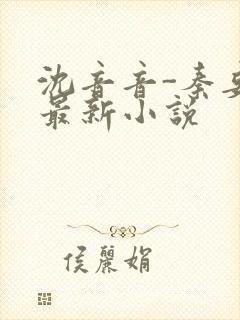 沈音音-秦
最新小説
侯麗娟